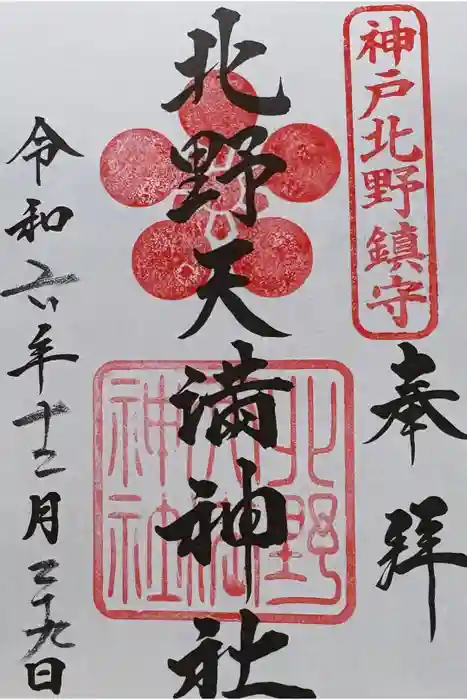 神戸北野鎮守
奉拝
北野天満神社
北野天満神社
令和六年十二月二十九日